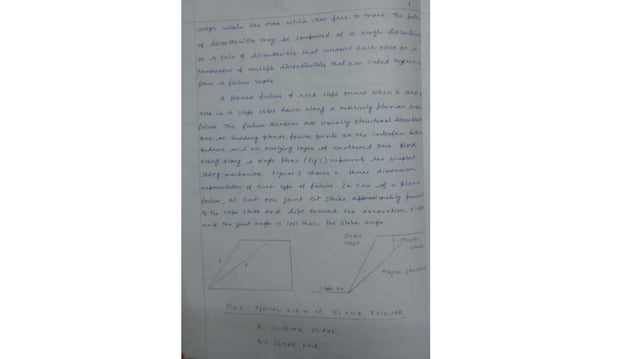 wedges within the rock which are free to move. The
of discontinuities may be comprised of a single
or a pair of discontinuities that intersect each other or a
combination of multiple discontinuities that are linked together
form a failure mode.
A planar failure of rock slope occurs when a
rock in a slope slides down along a relatively planar
The failure surfaces are usually structural
such as bedding planes, faults, joints or the interface
bedrock and an overlying layer of weathered rock. Block
sliding along a single plane (Fig 2) represents the simplest
sliding mechanism. Figure 3 shows a three dimension
representation of such type of failure. In case of a plane
failure, at least one joint set strike approximately
to the slope strike and dips toward the excavation slope
and the joint angle is less than the slope angle.
Slope
crest
Slope toe
Major
TYPICAL VIEW OF PLANE FAILURE
A = SLIDING PLANE
B = SLOPE FACE